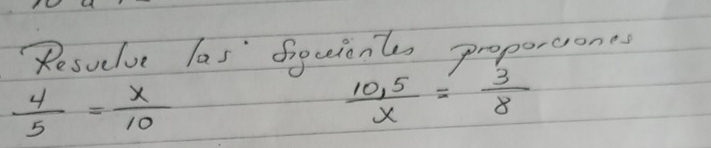 Resuelve las siguientes proporciones
4/5 = x/10    10,5/x = 3/8